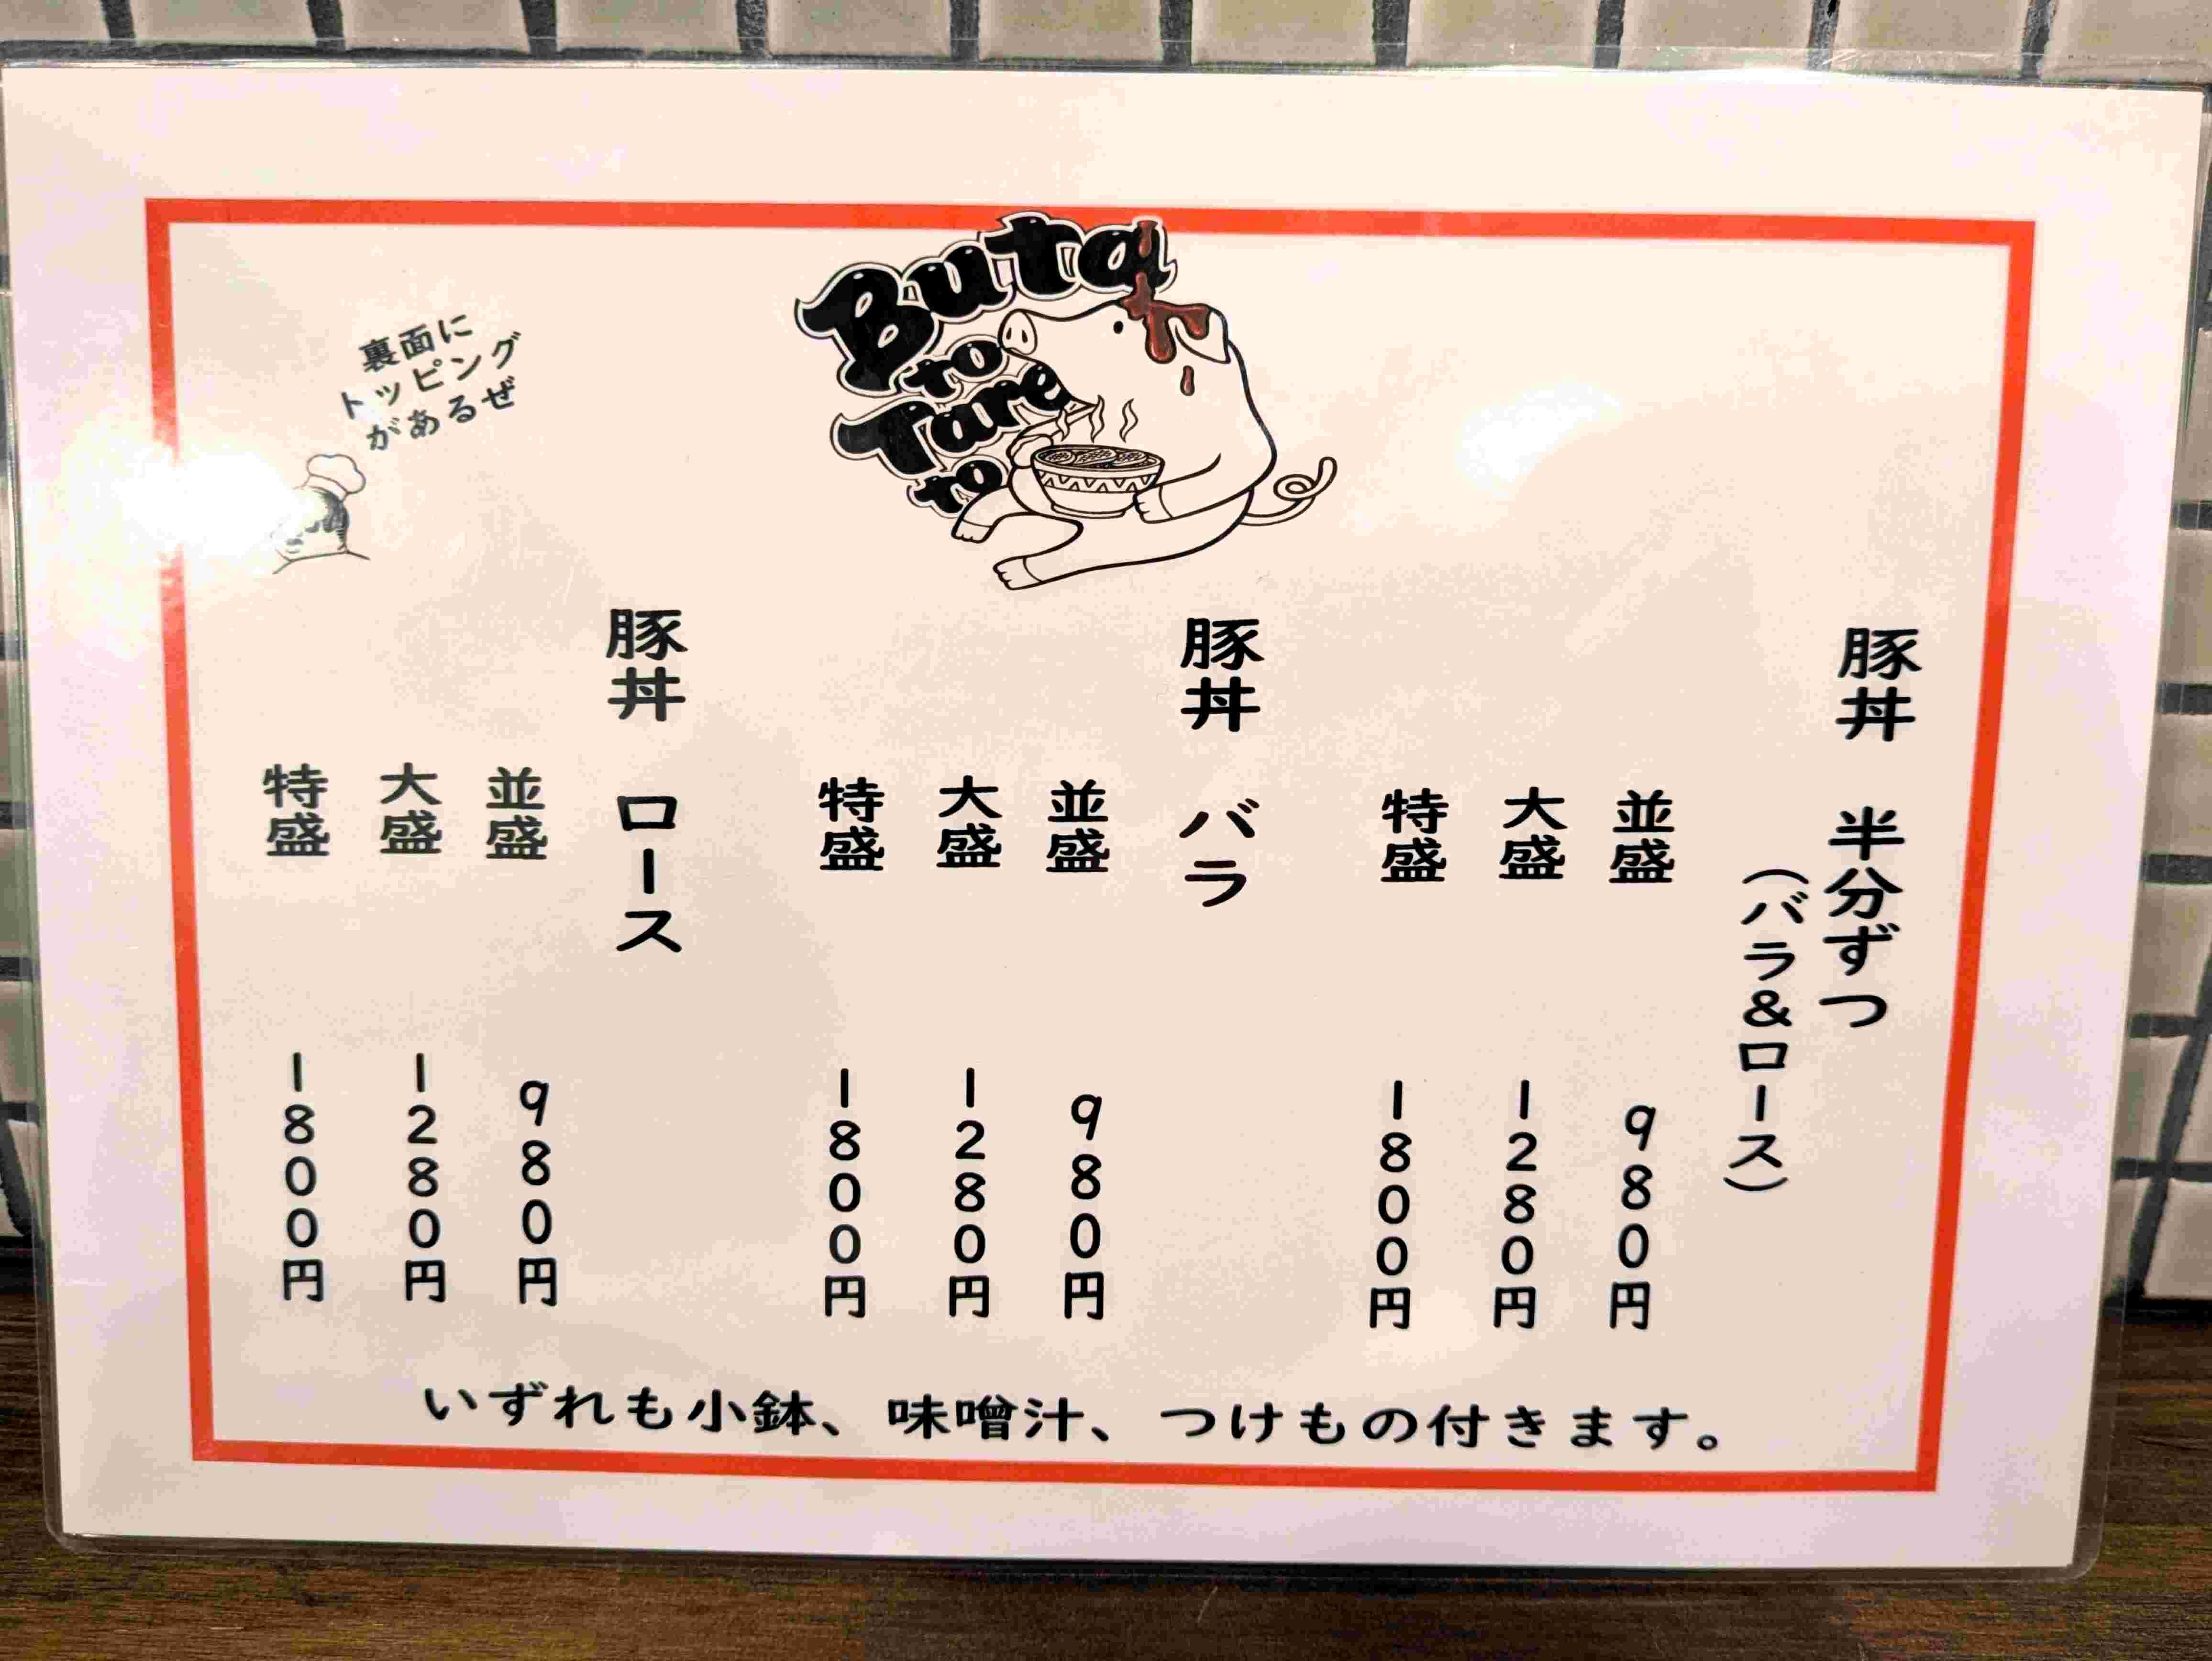 Buta
to
Tare
to
裏面に
トッピング
があるぜ
豚丼 半分ずつ
（バラ&ロース）
並盛 980円
大盛 1280円
特盛 1800円
豚丼 バラ
並盛 980円
大盛 1280円
特盛 1800円
豚丼 ロース
並盛 980円
大盛 1280円
特盛 1800円
いずれも小鉢、味噌汁、つけもの付きます。